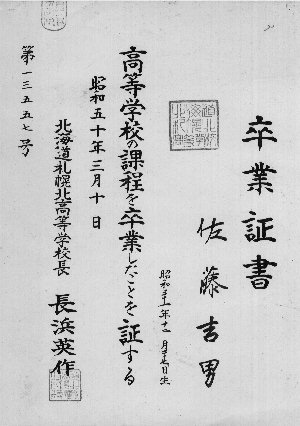 卒業証書
佐藤吉男
昭和三十一年十一月二十七日生
高等学校の課程を卒業したことを証する
昭和五十年三月十日
北海道札幌北高等学校長 長浜英作
第一三五五七号